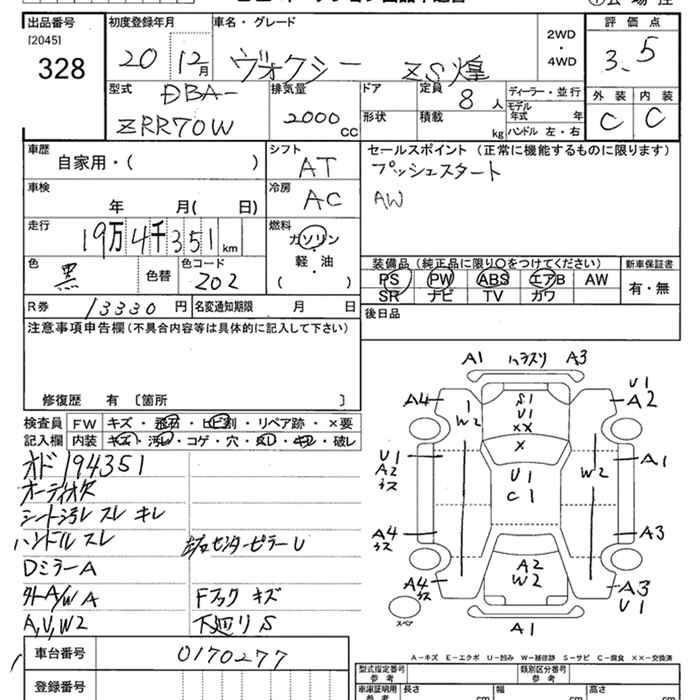 出品番号
[2045]
328
初度登録年月
20 12月
車名・グレード
ヴォクシー ZS煌
2WD
・
4WD
評価点
3.5
型式
DBA-
ZRR70W
排気量
2000
cc
ドア
定員
8人
ディーラー・並行
モデル
年式 年
形状
積載
kg
ハンドル 左・右
外装 内装
C C
車歴
自家用・( )
シフト
AT
セールスポイント (正常に機能するものに限ります)
プッシュスタート
AW
車検
年 月( 日)
冷房
AC
走行
19万4千351km
燃料
ガソリン
・
軽・油
( )
色
黒
色替
色コード
202
装備品 (純正品に限り〇をつけてください)
PS PW ABS エアB AW
SR ナビ TV カワ
新車保証書
有・無
R券
13330円
名変通知期限 月 日
後日品
注意事項申告欄 (不具合内容等は具体的に記入して下さい)
修復歴 有 [箇所 ]
検査員
記入欄
FW キズ・飛石・ヒビ割・リペア跡・×要
内装
コゲ・穴
破レ
オド194351
オーディオ欠
シート汚レ スレ キレ
ハンドル スレ
左右センターピラーU
DミラーA
外A/W A
Fフック キズ
A,U,W2
下廻りS
車台番号
0170277
登録番号
A1
ハラスリ
A3
A4
U1
A2
W2
S1
U1
XX
X
U1
A2
キス
U1
C1
W2
A1
A4
キス
A3
A4
キス
A2
W2
A3
U1
A1
スペア
A-キズ E-エクボ U-凹み W-補修跡 S-サビ C-腐食 XX-交換済
型式指定番号
参考
類別区分番号
参考
車庫証明用
参考
長さ
cm
幅
cm
高さ
cm